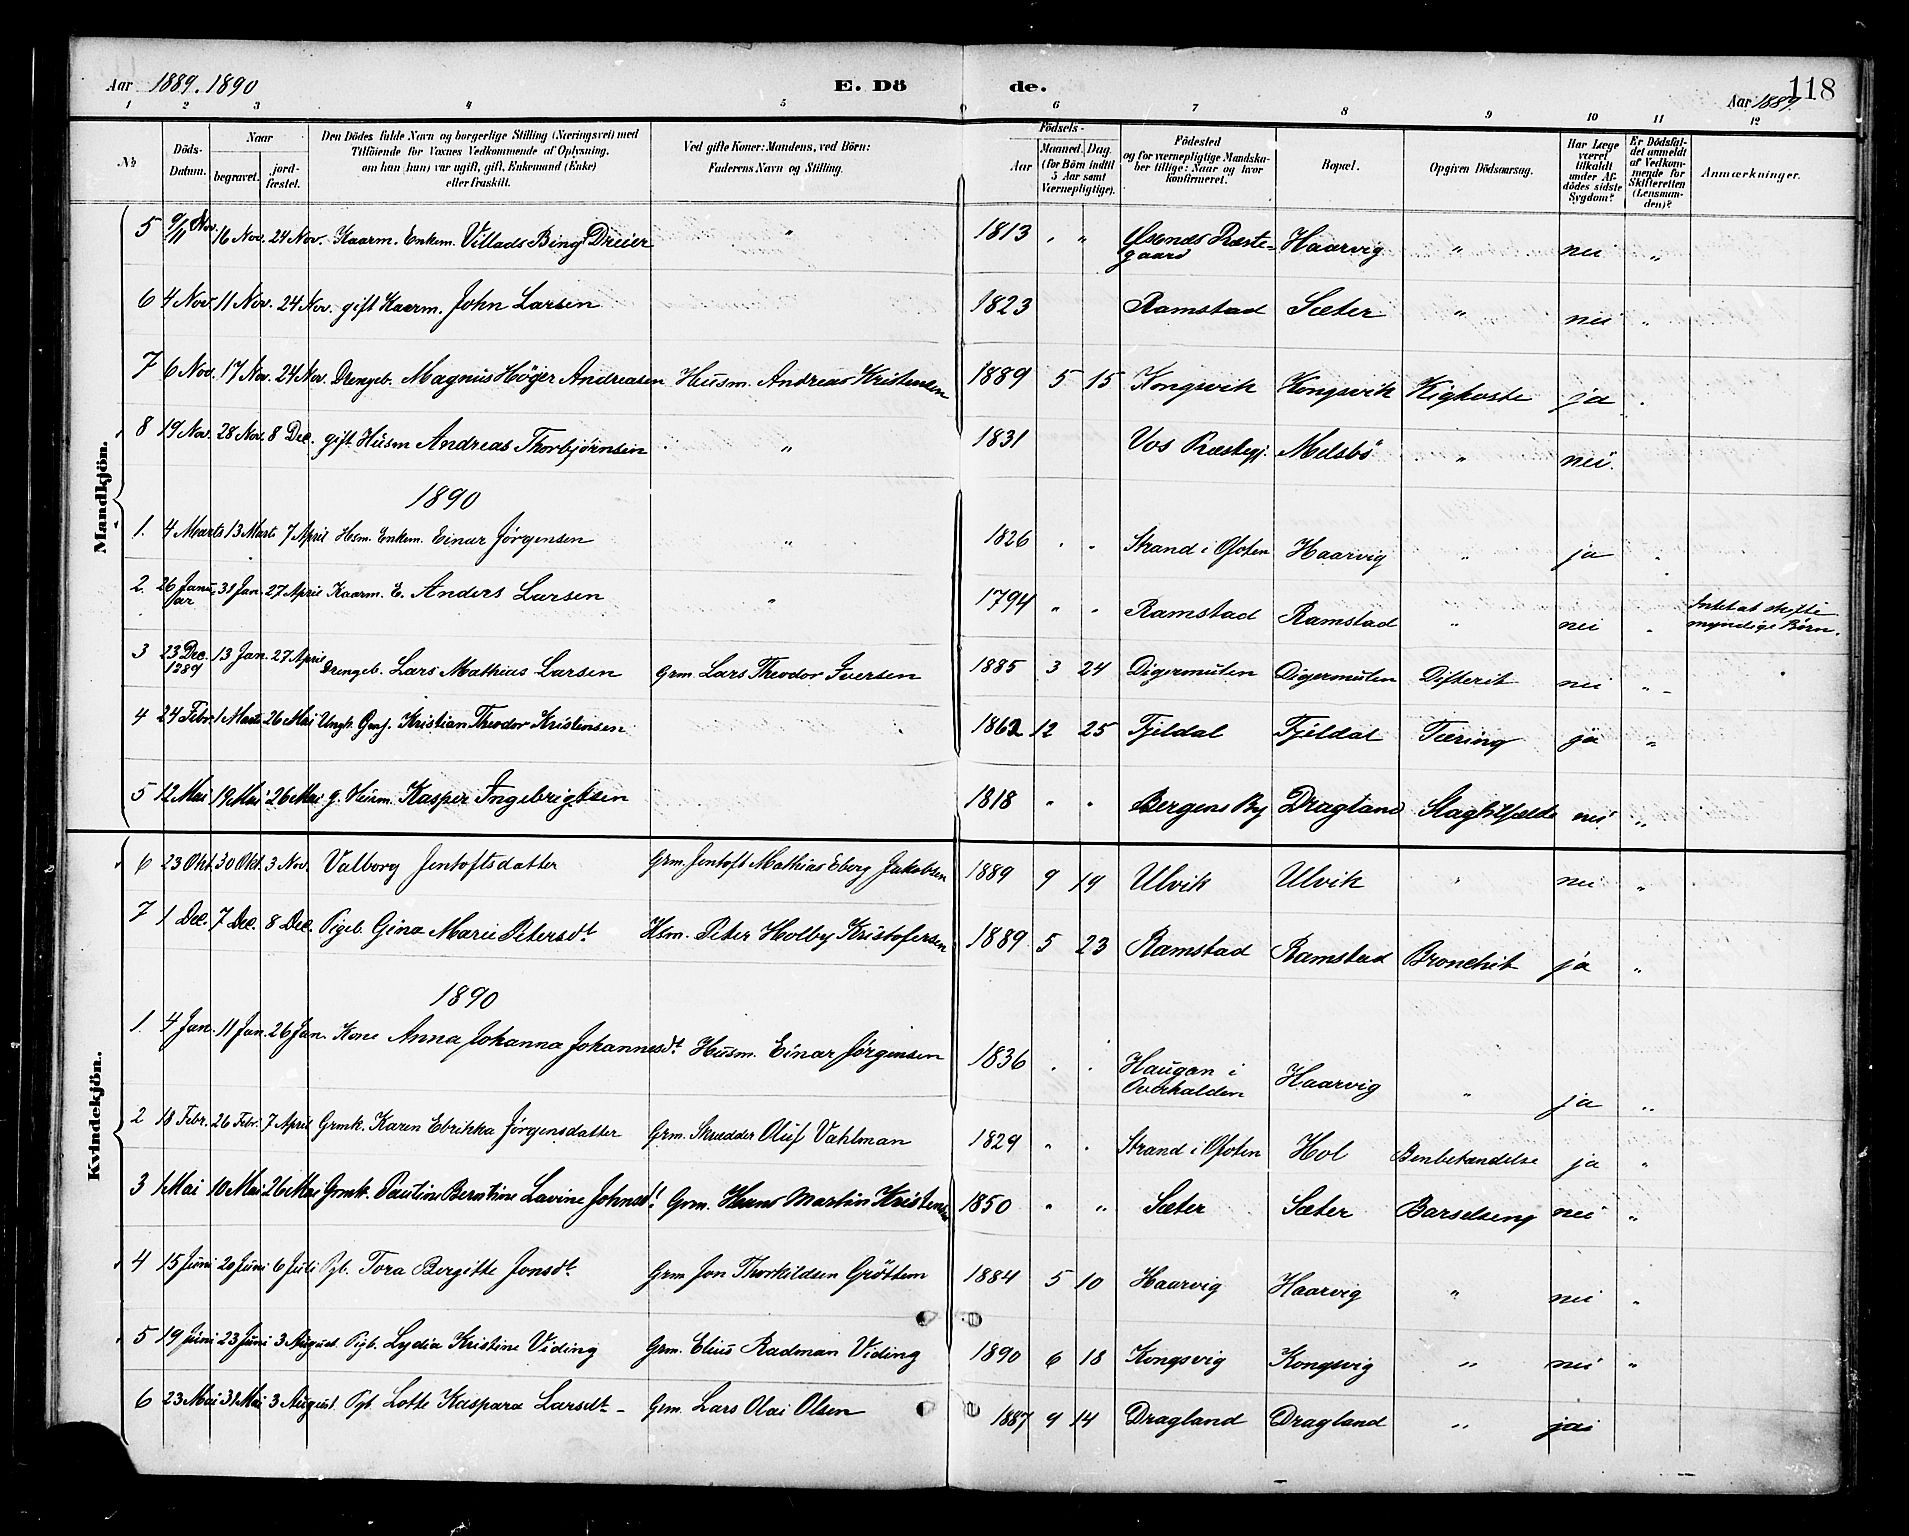 Aar 1889. 1890
E. Dö
de.
118
Aar 1889.
1 2 3 4 5 6 7 8 9 10 11 12
No
Döds-Datum.
Naar
begravet.
jord-fæstet.
Den Dödes fulde Navn og borgerlige Stilling (Næringsvei) med
Tilföiende for Voxnes Vedkommende af Oplysning,
om han (hun) var ugift, gift, Enkemand (Enke)
eller fraskilt.
Ved gifte Koner: Mandens, ved Börn:
Faderens Navn og Stilling.
Födsels-
Aar
Maaned. Dag.
(for Börn indtil
5 Aar samt
Værnepligtige).
Födested
og for værnepligtige Mandska-
ber tillige: Naar og hvor
konfirmeret.
Bopæl.
Opgiven Dödsaarsag.
Har Læge
været
tilkaldt
under Af-
dödes sidste
Sygdom?
Er Dödsfal-
det anmeldt
af Vedkom-
mende for
Skifteretten
(Lensman-
den)?
Anmærkninger.
Mandkjön.
5 9/11 Nov. 16 Nov. 24 Nov. Kaarm. Enkem. Villads Bing Dreier " 1813 " " Øksnæs Præste-gaard Haarvig " nei "
6 4 Nov. 11 Nov. 24 Nov. gift Kaarm. John Larsen 1823 Ramstad Sæter " nei "
7 6 Nov. 17 Nov. 24 Nov. Drengeb. Magnus Höger Andreasen Husm. Andreas Kristensen 1889 5 15 Kongsvik Kongsvik Kighoste ja "
8 19 Nov. 28 Nov. 8 Dec. gift Husm Andreas Thorbjørnsen " 1831 Vos Præstegj. Melsbö " nei.
1890
1. 4 Marts 13 Marts 7 April Hsm. Enkem. Einar Jørgensen " 1826 " " Strand i Ofoten Haarvig " ja "
2. 26 Januar 31 Jan. 27 April Kaarm. E. Anders Larsen " 1794 " " Ramstad Ramstad " nei " Intet at skifte myndige Børn.
3 23 Dec. 1889 13 Jan. 27 April Drengeb. Lars Mathias Larsen Grm. Lars Theodor Iversen 1885 3 24 Digermulen Digermulen Difterit nei "
4 24 Febr. 1 Marts 26 Mai Ungk. Gmf. Kristian Theodor Kristensen 1862 12 25 Fjeldal Fjeldal Tæring ja "
5 12 Mai 19 Mai 26 Mai g. Husm. Kasper Ingebrigtsen 1818 " " Bergens By Dragland Slagtilfælde nei "
Kvindekjön.
6 23 Okt. 30 Okt. 3 Nov. Valborg Jentoftsdatter Grm. Jentoft Mathias Eberg Jakobsen 1889 9 19 Ulvik Ulvik " nei "
7 1 Dec. 7 Dec. 8 Dec. Pigeb. Gina Marie Petersdt. Hsm. Peter Holby Kristofersen 1889 5 23 Ramstad Ramstad Bronchit ja "
1890
1. 4 Jan. 11 Jan. 26 Jan. Kone Anna Johanna Johannesdt. Husm. Einar Jørgensen 1836 " " Haugan i Overhalden Haarvig " ja "
2 18 Febr. 26 Febr. 7 April Grmk. Karen Ebrikka Jørgensdatter Grm. Skrædder Oluf Vahlman 1829 " " Strand i Ofoten Hol Benbetændelse ja "
3 1 Mai 10 Mai 26 Mai Grmk. Pauline Berntine Lavine Johnsdt. Grm. Hans Martin Kristensen 1850 " " Sæter Sæter Barselseng nei "
4 15 Juni 20 Juni 6 Juli Pgb. Tora Bergitte Jonsdt. Grm Jon Thorkildsen Grøttem 1884 5 10 Haarvig Haarvig " nei "
5 19 Juni 23 Juni 3 August. Pigb. Lydia Kristine Viding Grm. Elius Radman Viding 1890 6 18 Kongsvig Kongsvig " nei "
6 23 Mai 31 Mai 3 August. Pgb. Lotte Kaspara Larsdt. Grm. Lars Olai Olsen 1887 9 14 Dragland Dragland "